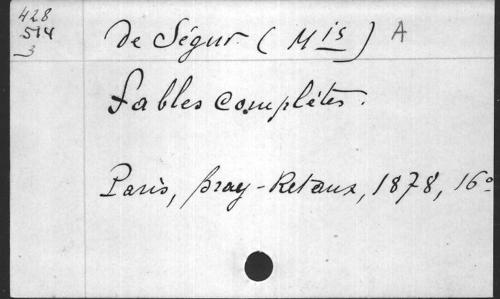 428
514
3
de Ségur (Mis) A
Fables complètes.
Paris, Bray-Retaux, 1878, 16º